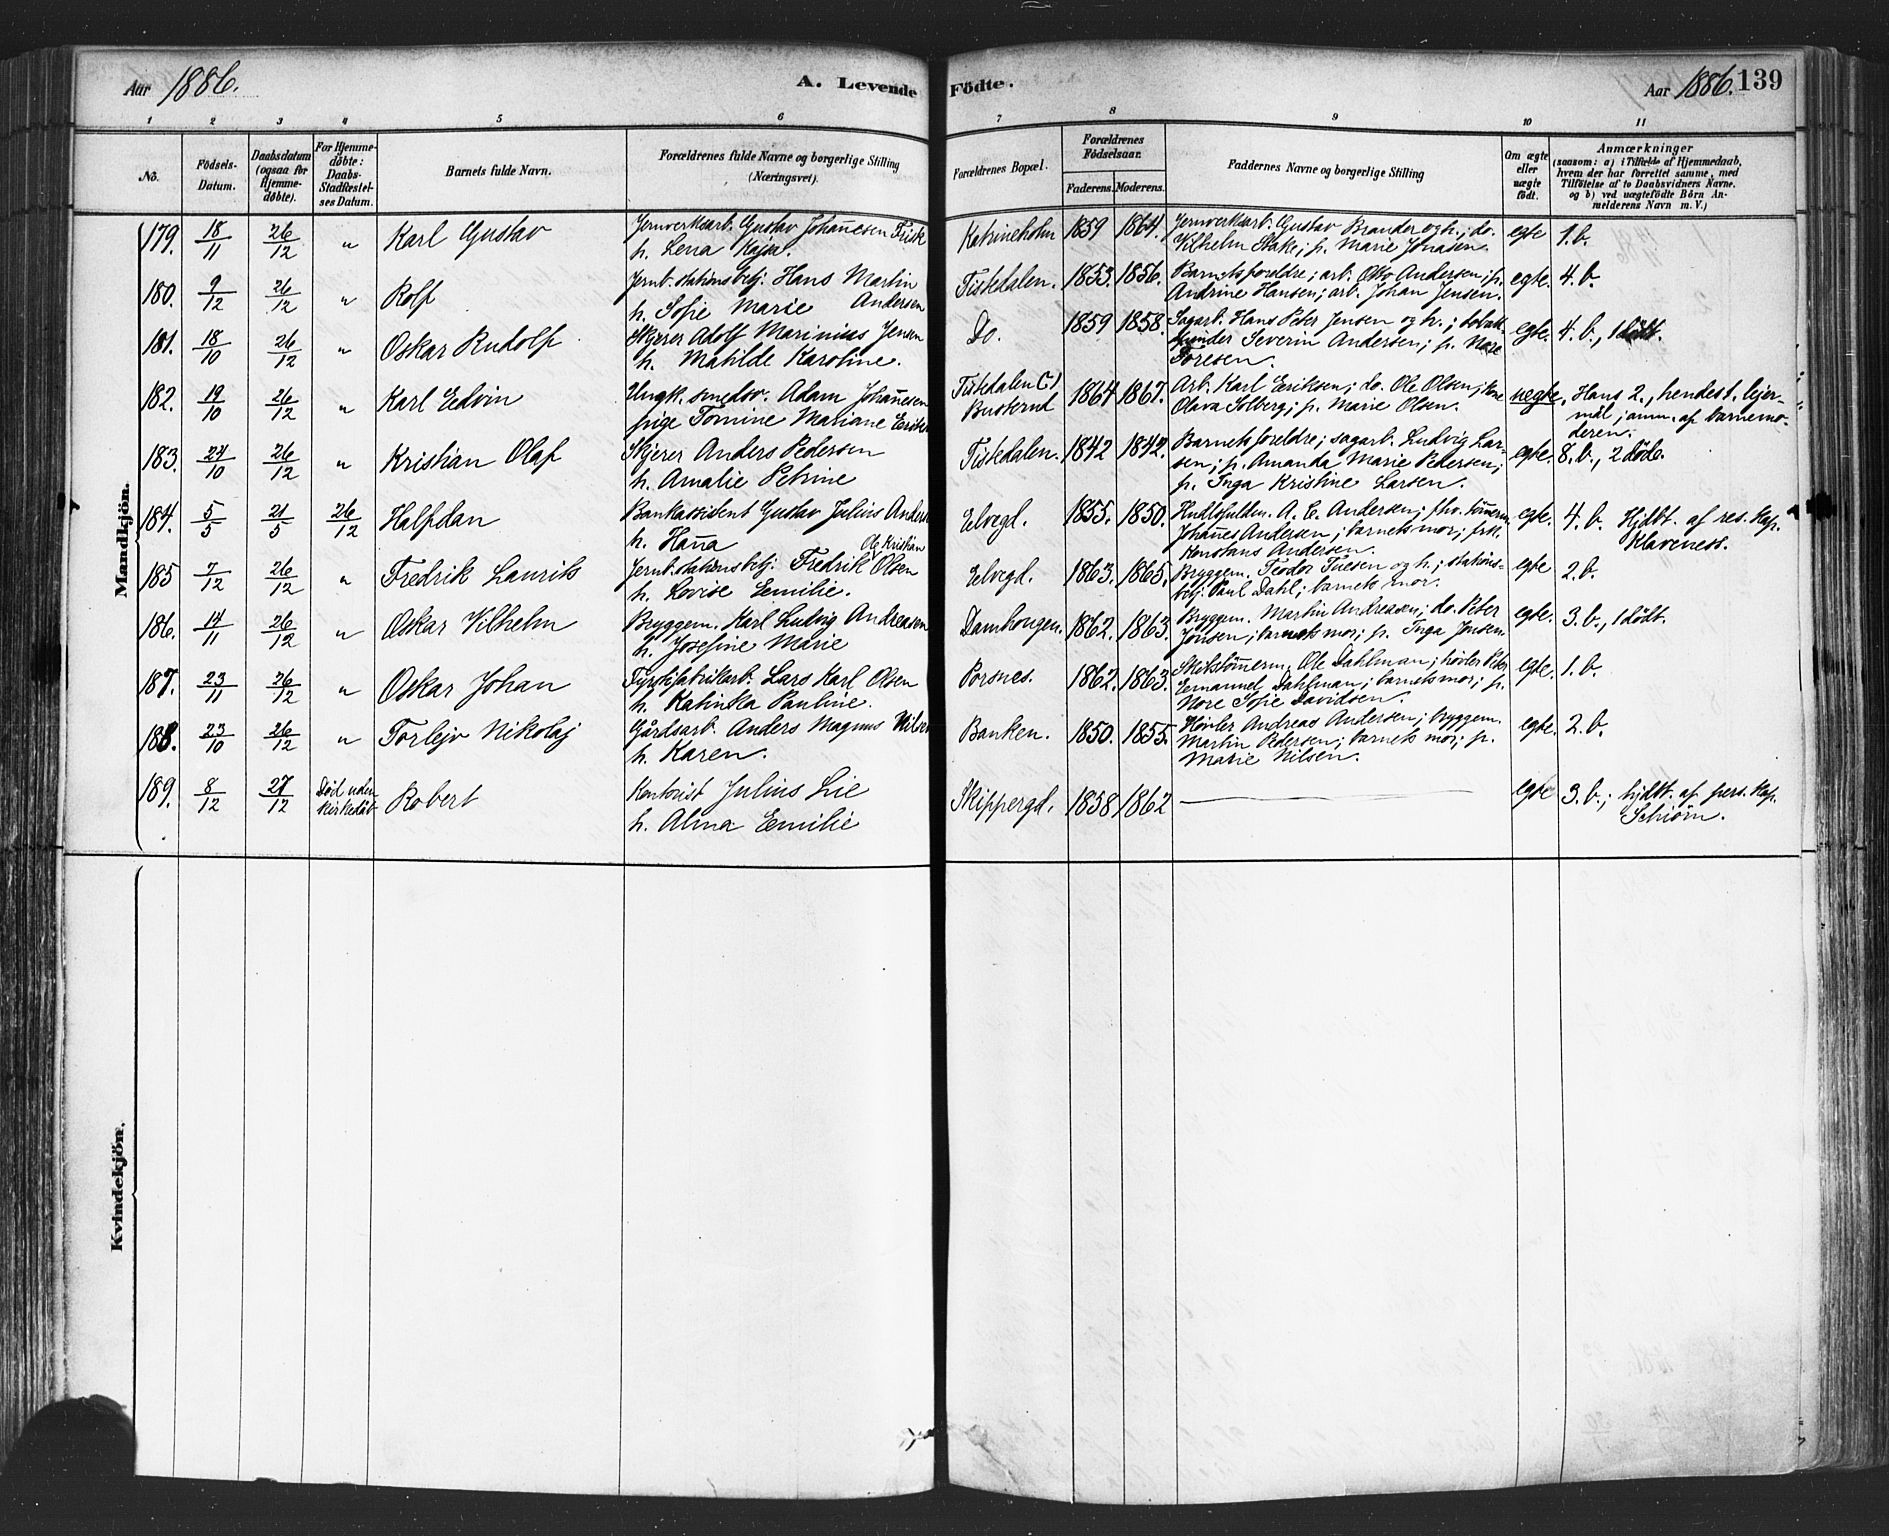 Aar 1886.
A. Levende Fødte.
Aar 1886. 139
1 2 3 4 5 6 7 8 9 10 11
No. Födsels-Datum. Daabsdatum (ogsaa for Hjemmedöbte). For Hjemmedöbte: Daabs-Stadfæstelses Datum. Barnets fulde Navn. Forældrenes fulde Navne og borgerlige Stilling (Næringsvei). Forældrenes Bopæl. Forældrenes Födselsaar. Faderens. Moderens. Faddernes Navne og borgerlige Stilling Om ægte eller uægte födt. Anmærkninger (saasom: a) i Tilfælde af Hjemmedaab, hvem der har forrettet samme, med Tilföielse af to Daabsvidners Navne, og b) ved uægtefödte Börn Anmelderens Navn m. V.)
Mandkjön.
179. 18/11 26/12 " Karl Gustav Jernverksarb. Gustav Johan̄esen Frisk Katrineholm 1859 1864. Jernverksarb. Gustav Brander og h.; do. egte 1. b.
h. Lena Kajsa. Vilhelm Stake; p. Marie Jonasen.
180. 9/12 26/12 " Rolf Jernb.stationsbetj. Hans Martin Tistedalen. 1853. 1856. Barnets foreldre; arb. Otto Andersen; p. egte. 4. b.
h. Sofie Marie Andersen Andrine Hansen; arb. Johan Jensen.
181. 18/10 26/12 " Oskar Rudolf Skjerer Adolf Marinius Jensen Do. 1859 1858. Sagarb. Hans Peter Jensen og h.; egte. 4. b., 1 dødt.
h. Matilde Karoline. Severin Andersen; p.
Toresen.
182. 19/10 26/12 " Karl Edvin Ungk. smedsv. Adam Johan̄esen Tistedalen (?) 1864 1867. Arb. Karl Eriksen; do. Ole Olsen; uegte. Hans 2., hendes 1. lejer-
pige Tomine Mariane Busterud Olava Solberg; p. Marie Olsen. mål; anm. af barnemo-
deren.
183. 24/10 26/12 " Kristian Olaf Skjerer Anders Pedersen Tistedalen. 1842 1842. Barnets foreldre; sagarb. Ludvig Lar- egte. 8. b., 2 døde.
h. Amalie Petrine sen; p. Amanda Marie Pedersen;
p. Inga Kristine Larsen.
184. 5/5 21/5 26/12 Halfdan Bankassistent Gustav Julius Anders Elvegd. 1855. 1850. A. C. Andersen; egte. 4. b. Hjdbt. af res. kap.
h. Han̄a Johan̄es Andersen; barnets mor; frk. Klaveness.
Konstans Andersen.
185 7/12 26/12 " Fredrik Laurits Jernb.stationsbetj. Fredrik Ole Kristian Olsen Elvegd. 1863. 1865. Bryggem. Teodor Tuesen og h.; stations- egte 2. b.
h. Lovise Emilie. betj. Paul Dahl; barnets mor.
186. 14/11 26/12 " Oskar Vilhelm Bryggem. Karl Ludvig Andreasen Damhougen. 1862. 1863. Bryggem. Martin Andreasen; do. Peter egte. 3. b., 1 dødt.
h. Josefine Marie Jonsen; barnets mor; p. Inga Jonsen
187. 23/11 26/12 " Oskar Johan Fyrstikfabrikarb. Lars Karl Olsen Porsnes. 1862. 1863. Ole Dahlman; høvler Peter egte. 1. b.
h. Katinka Pauline. Emanuel Dahlman; barnets mor; p.
Nore Sofie Davidsen.
188. 23/10 26/12 " Torlejv Nikolaj Gårdsarb. Anders Magnus Nilsen Banken. 1850. 1855. Høvler Andreas Andersen; bryggem. egte. 2. b.
h. Karen. Martin Pedersen; barnets mor; p.
Marie Nilsen.
189. 8/12 27/12 Død uden kirkedåb Robert Kontorist Julius Lie Skippergd. 1858 1862 — egte 3. b.; hjdbt. af pers. kap.
h. Alma Emilie Schiørn.
Kvindekjön.